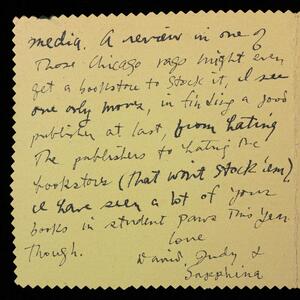 media. A review in one of
those Chicago rags might even
get a bookstore to stock it, I see
one only move, in finding a good
publisher at last, from hating
the publishers to hating the
bookstores (that won't stock 'em)
I have seen a lot of your
books in student paws this year
though.
love
David, Judy &
Josephina